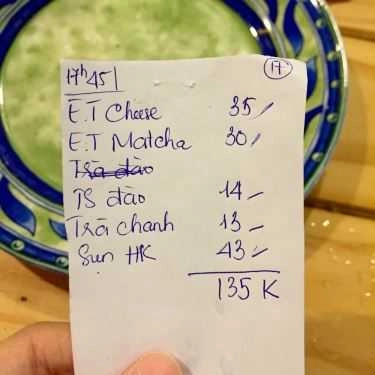 17h45
17
E.T Cheese 35
E.T Matcha 30
Trà đào
TS đào 14
Trà chanh 13
Sụn HK 43
135 K